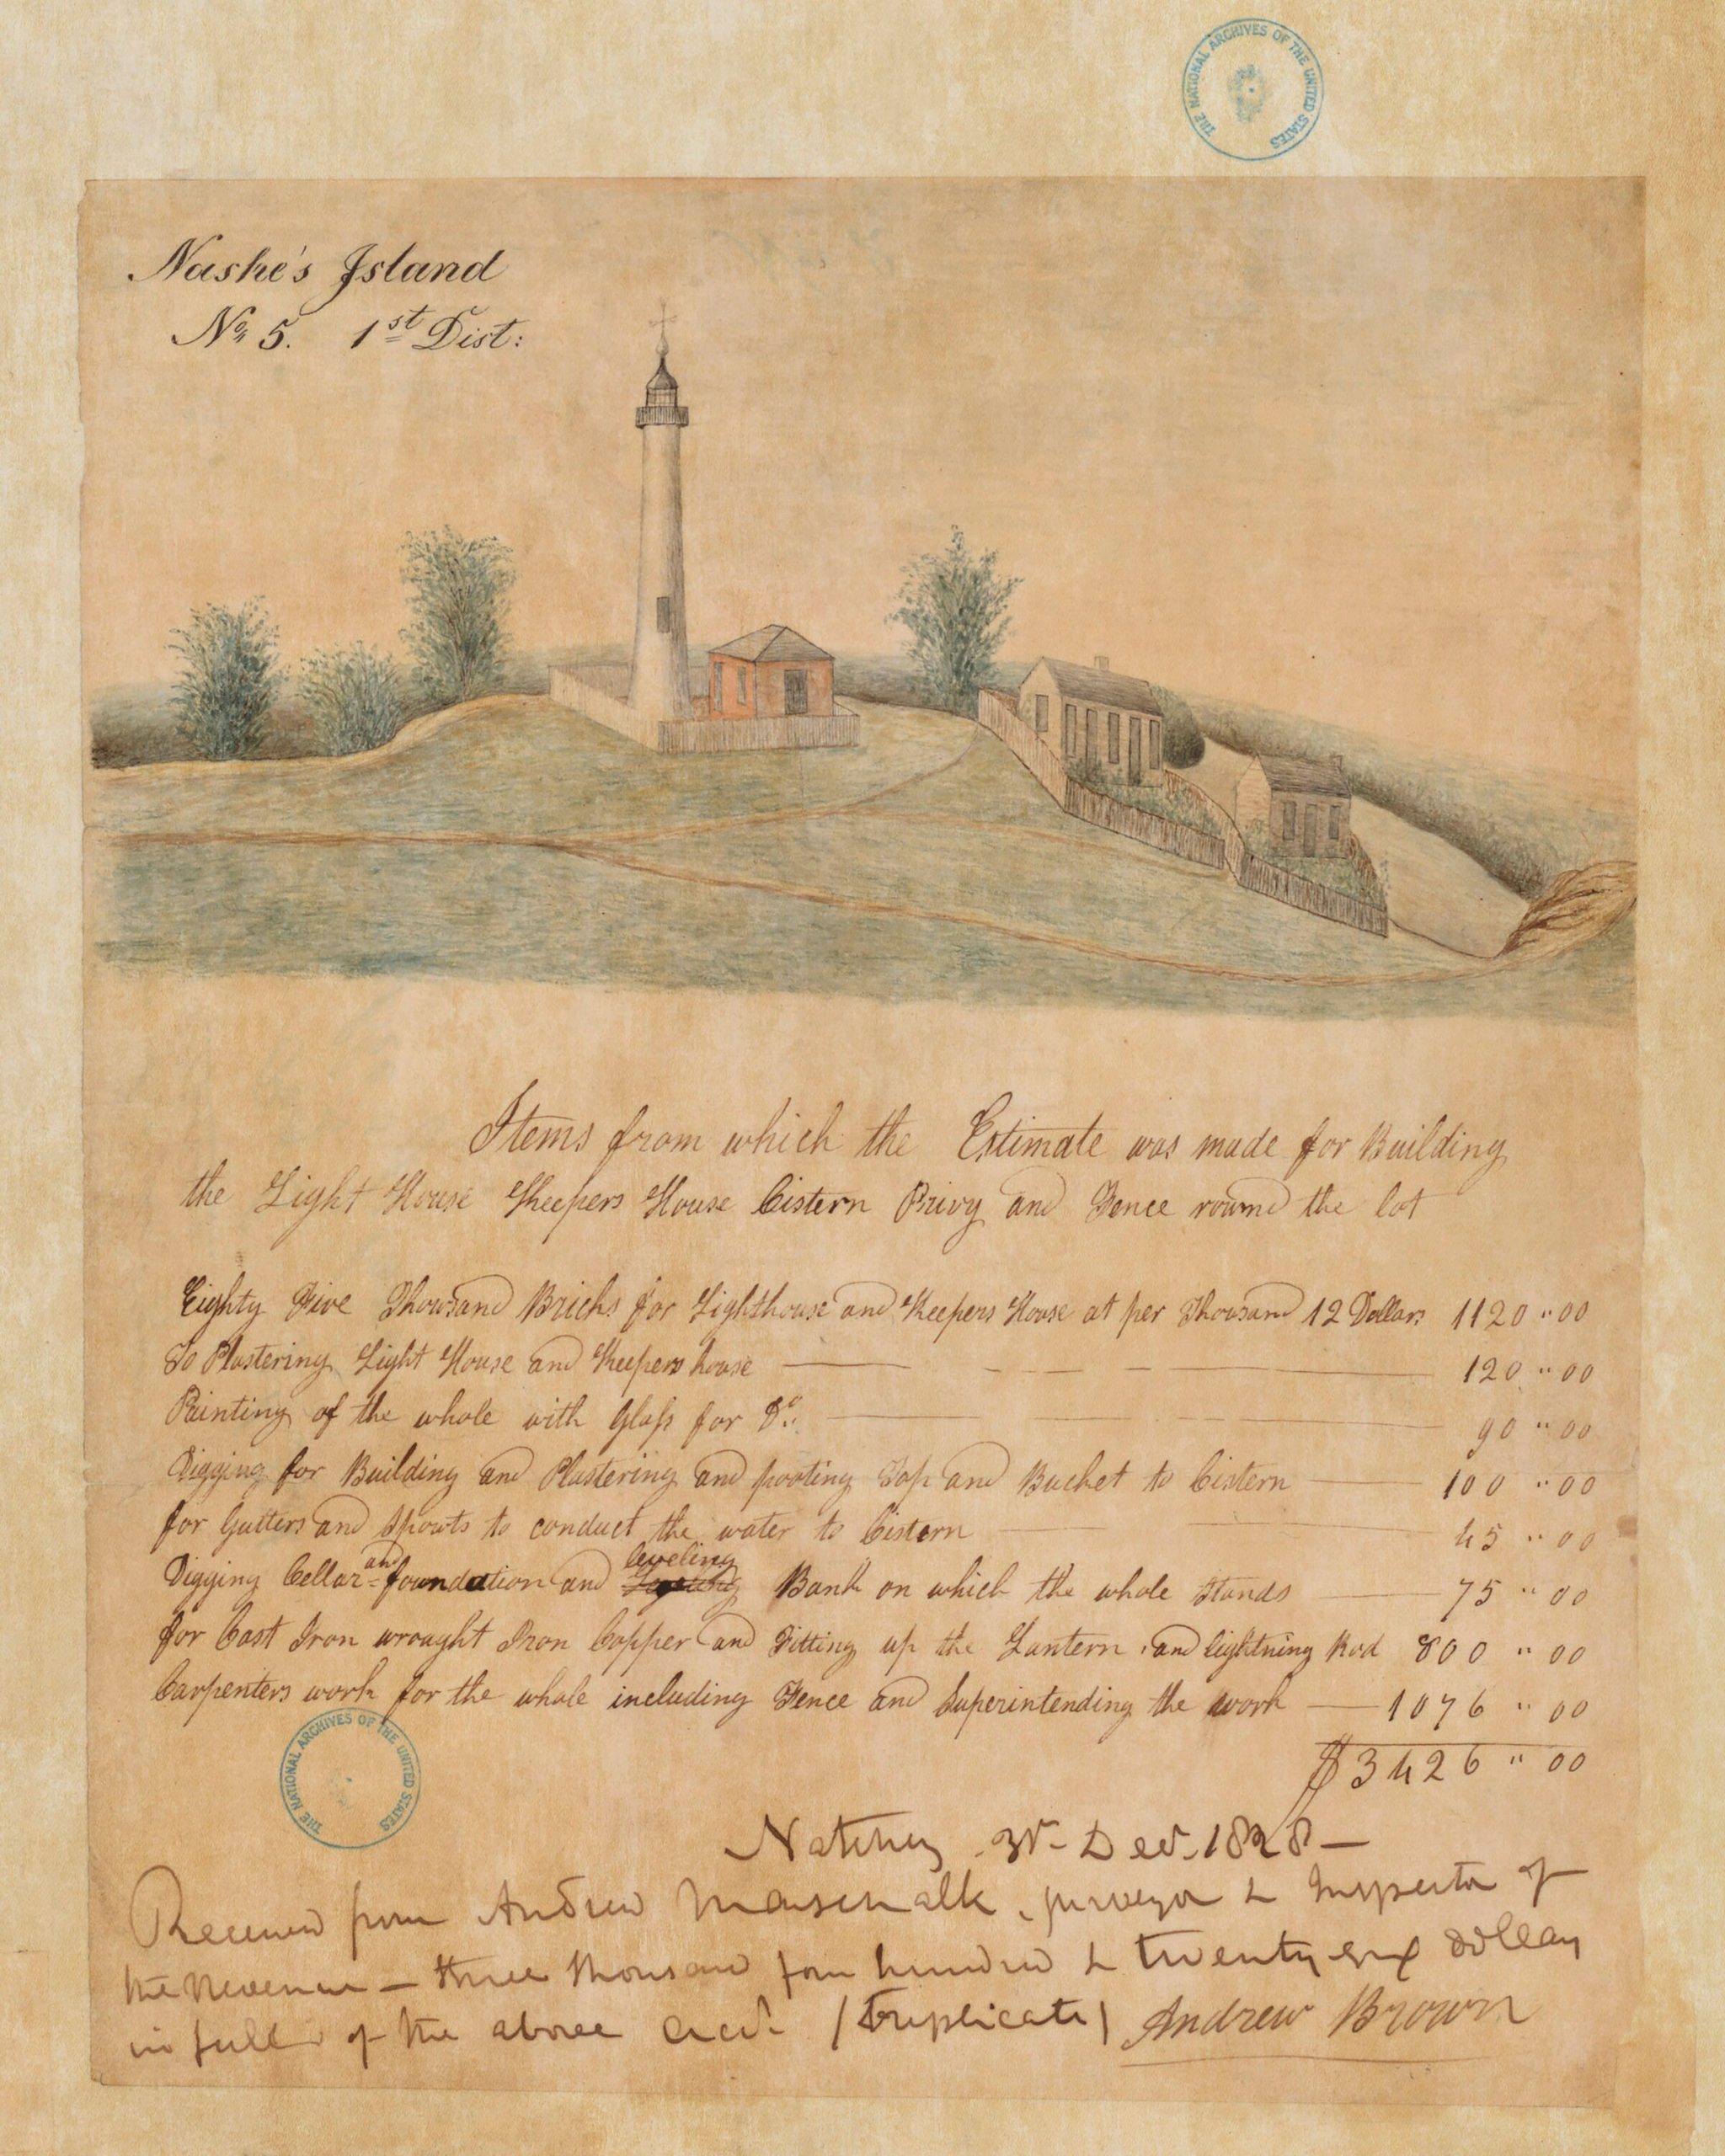 THE NATIONAL ARCHIVES OF THE UNITED STATES
Nashe's Island
No. 5. 1st Dist:
Items from which the Estimate was made for Building
the Light House Keepers House Cistern Privy and Fence round the lot
Eighty Five Thousand Bricks for Lighthouse and Keepers House at per Thousand 12 Dollars 1120 " 00
To Plastering Light House and Keepers house 120 " 00
Painting of the whole with Glass for Do. 90 " 00
Digging for Building and Plastering and Top and Bucket to Cistern 100 " 00
for Gutters and Spouts to conduct the water to Cistern 45 " 00
Digging Cellar and foundation and leveling Bank on which the whole Stands 75 " 00
for Cast Iron wrought Iron Copper and Fitting up the Lantern and lightning Rod 800 " 00
Carpenters work for the whole including Fence and Superintending the work 1076 " 00
$3426 " 00
THE NATIONAL ARCHIVES OF THE UNITED STATES
Natchez Dec. 1828 —
Received from Andrew Marschalk, surveyor & Inspector of
the Revenue — three thousand four hundred & twenty six dollars
in full of the above acct (triplicate) Andrew Brown